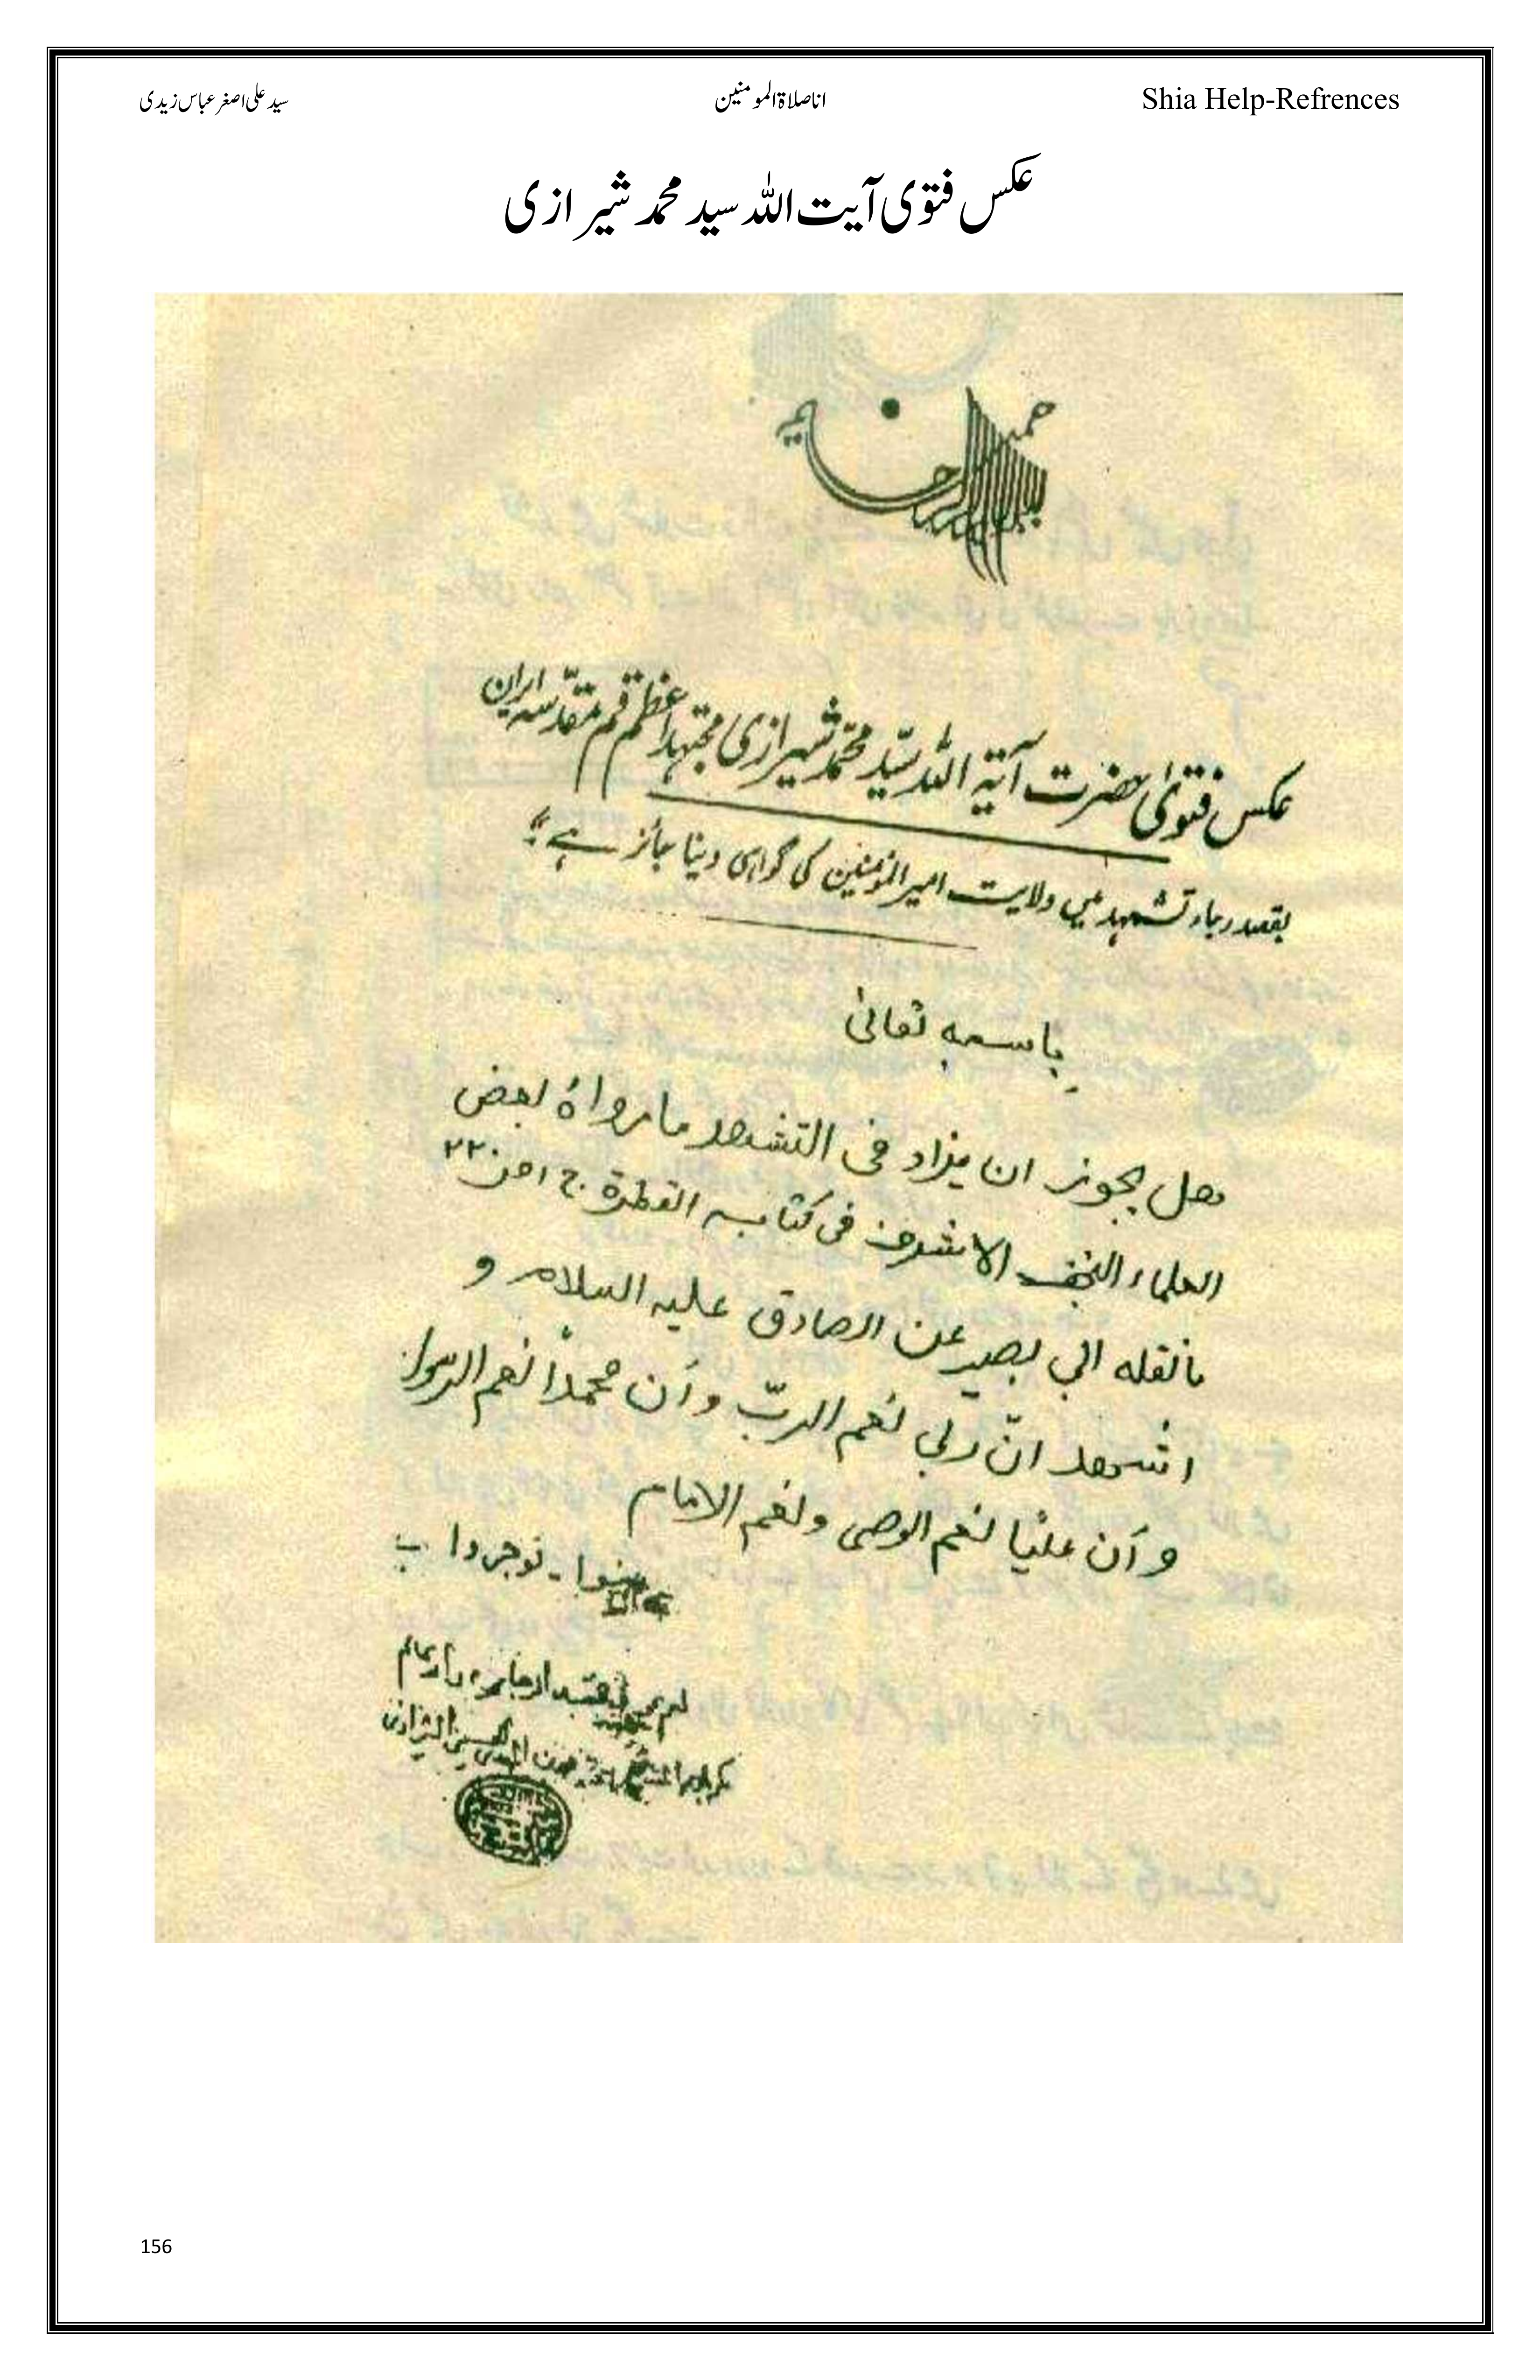 Shia Help-Refrences اناصلاۃالمومنین سید علی اصغر عباس زیدی
عکس فتوی آیت اللہ سید محمد شیرازی
بسم الله الرحمن الرحیم
عکس فتویٰ حضرت آیۃ اللہ سیّد محمّد شیرازی مجتہد اعظم قم مقدّسہ ایران
بقصد رجاء تشہد میں ولایت امیر المؤمنین کی گواہی دینا جائز ہے
باسمہ تعالیٰ
ھل یجوز ان یزاد فی التشھد ما رواہ بعض
العلماء النجف الاشرف فی کتابہ القطرۃ ج ۱ ص ۲۲
مانقلہ ابی بصیر عن الصادق علیہ السلام و
اشھد انّ ربی نعم الربّ و أن محمداً نعم الرسول
و أن علیّا نعم الوصی و نعم الامام
بینوا - توجروا
156